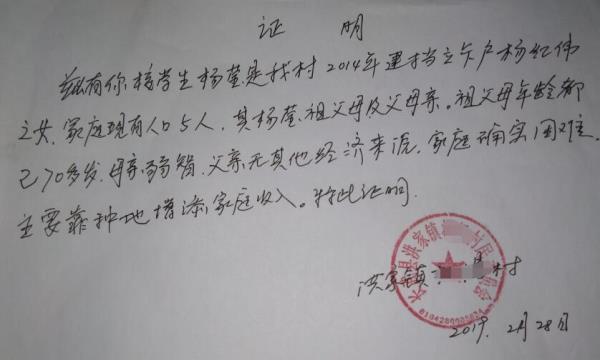 证 明
兹有你校学生杨莹是我村2014年建档立卡户杨红伟
之女,家庭现有人口5人,其杨莹、祖父母及父母亲。祖父母年龄都
已70多岁,母亲弱智,父亲无其他经济来源,家庭确实困难。
主要靠种地增添家庭收入。特此证明。
洪家镇 村
2019.2月28日
县洪家镇 村民委员会